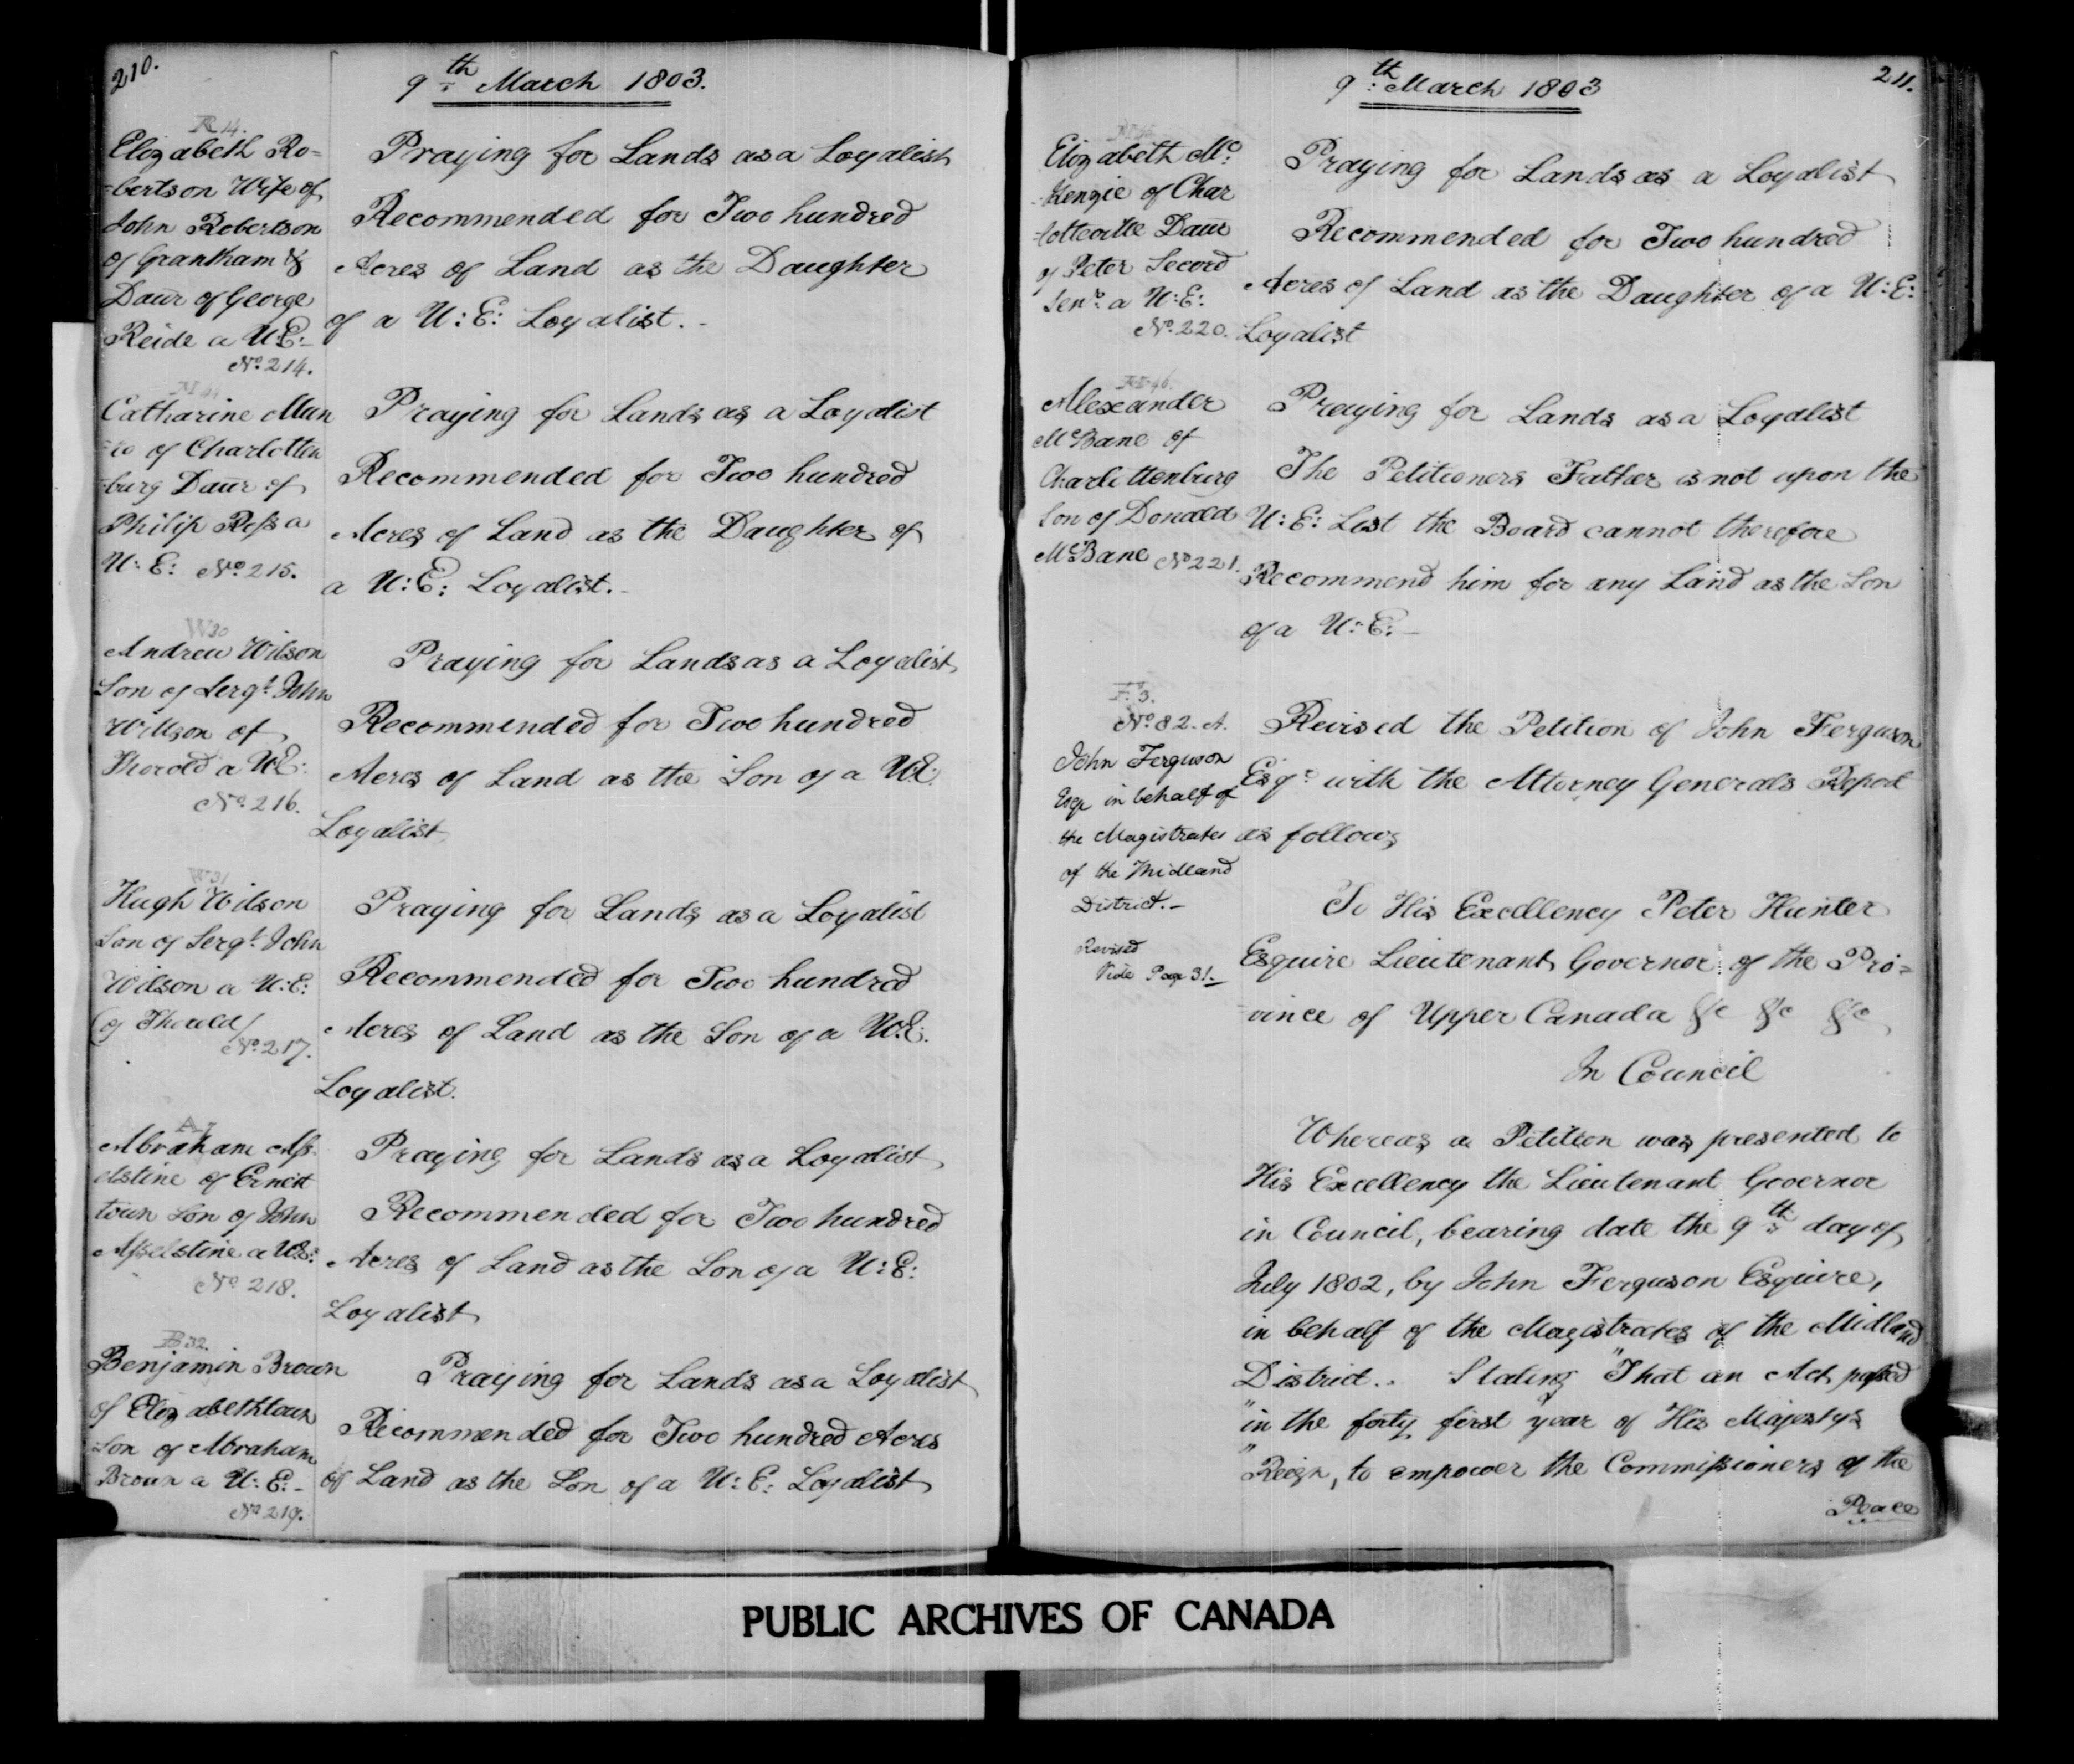 210.
9th March 1803.
R 14.
Elizabeth Ro=
=bertson Wife of
John Robertson
of Grantham &
Daur of George
Reide a U:E:
No 214.
Praying for Lands as a Loyalist
Recommended for Two hundred
Acres of Land as the Daughter
of a U:E: Loyalist.
M 44
Catharine Mun
=ro of Charlotten
=burg Daur of
Philip Ross a
U:E: No 215.
Praying for Lands as a Loyalist
Recommended for Two hundred
Acres of Land as the Daughter of
a U:E: Loyalist.
W30
Andrew Wilson
Son of Sergt John
Willson of
Thorold a UE:
No 216.
Praying for Lands as a Loyalist
Recommended for Two hundred
Acres of Land as the Son of a UE:
Loyalist
W31
Hugh Wilson
Son of Sergt John
Wilson a U:E:
(of Thorold/
No 217.
Praying for Lands as a Loyalist
Recommended for Two hundred
Acres of Land as the Son of a U:E:
Loyalist.
A 7
Abraham Ass
elstine of Ernest
town Son of John
Asselstine a UE:
No 218.
Praying for Lands as a Loyalist
Recommended for Two hundred
Acres of Land as the Son of a U:E:
Loyalist
B 32.
Benjamin Brown
of Elizabethtown
Son of Abraham
Brown a U:E:
No 219.
Praying for Lands as a Loyalist
Recommended for Two hundred Acres
of Land as the Son of a U:E: Loyalist
211.
9th March 1803
Elizabeth Mc:
Kenzie of Char
=lotteville Daur
of Peter Secord
Senr a U:E:
No 220.
Praying for Lands as a Loyalist
Recommended for Two hundred
Acres of Land as the Daughter of a U:E:
Loyalist
Alexander
McBane of
Charlottenburg
Son of Donald
McBane No 221.
Praying for Lands as a Loyalist
The Petitioners Father is not upon the
U:E: List the Board cannot therefore
Recommend him for any Land as the Son
of a U:E:
F 3.
No 82. A.
John Ferguson
Esqr in behalf of
the Magistrates
of the Midland
District.
Revised
Vide Page 31.
Revised the Petition of John Ferguson
Esqr with the Attorney Generals Report
as follows
To His Excellency Peter Hunter
Esquire Lieutenant Governor of the Pro=
=vince of Upper Canada &c &c &c
In Council
Whereas a Petition was presented to
His Excellency the Lieutenant Governor
in Council, bearing date the 9th day of
July 1802, by John Ferguson Esquire,
in behalf of the Magistrates of the Midland
District. Stating "That an Act passed
"in the forty first year of His Majesty's
"Reign, to empower the Commissioners of the
Peace
PUBLIC ARCHIVES OF CANADA